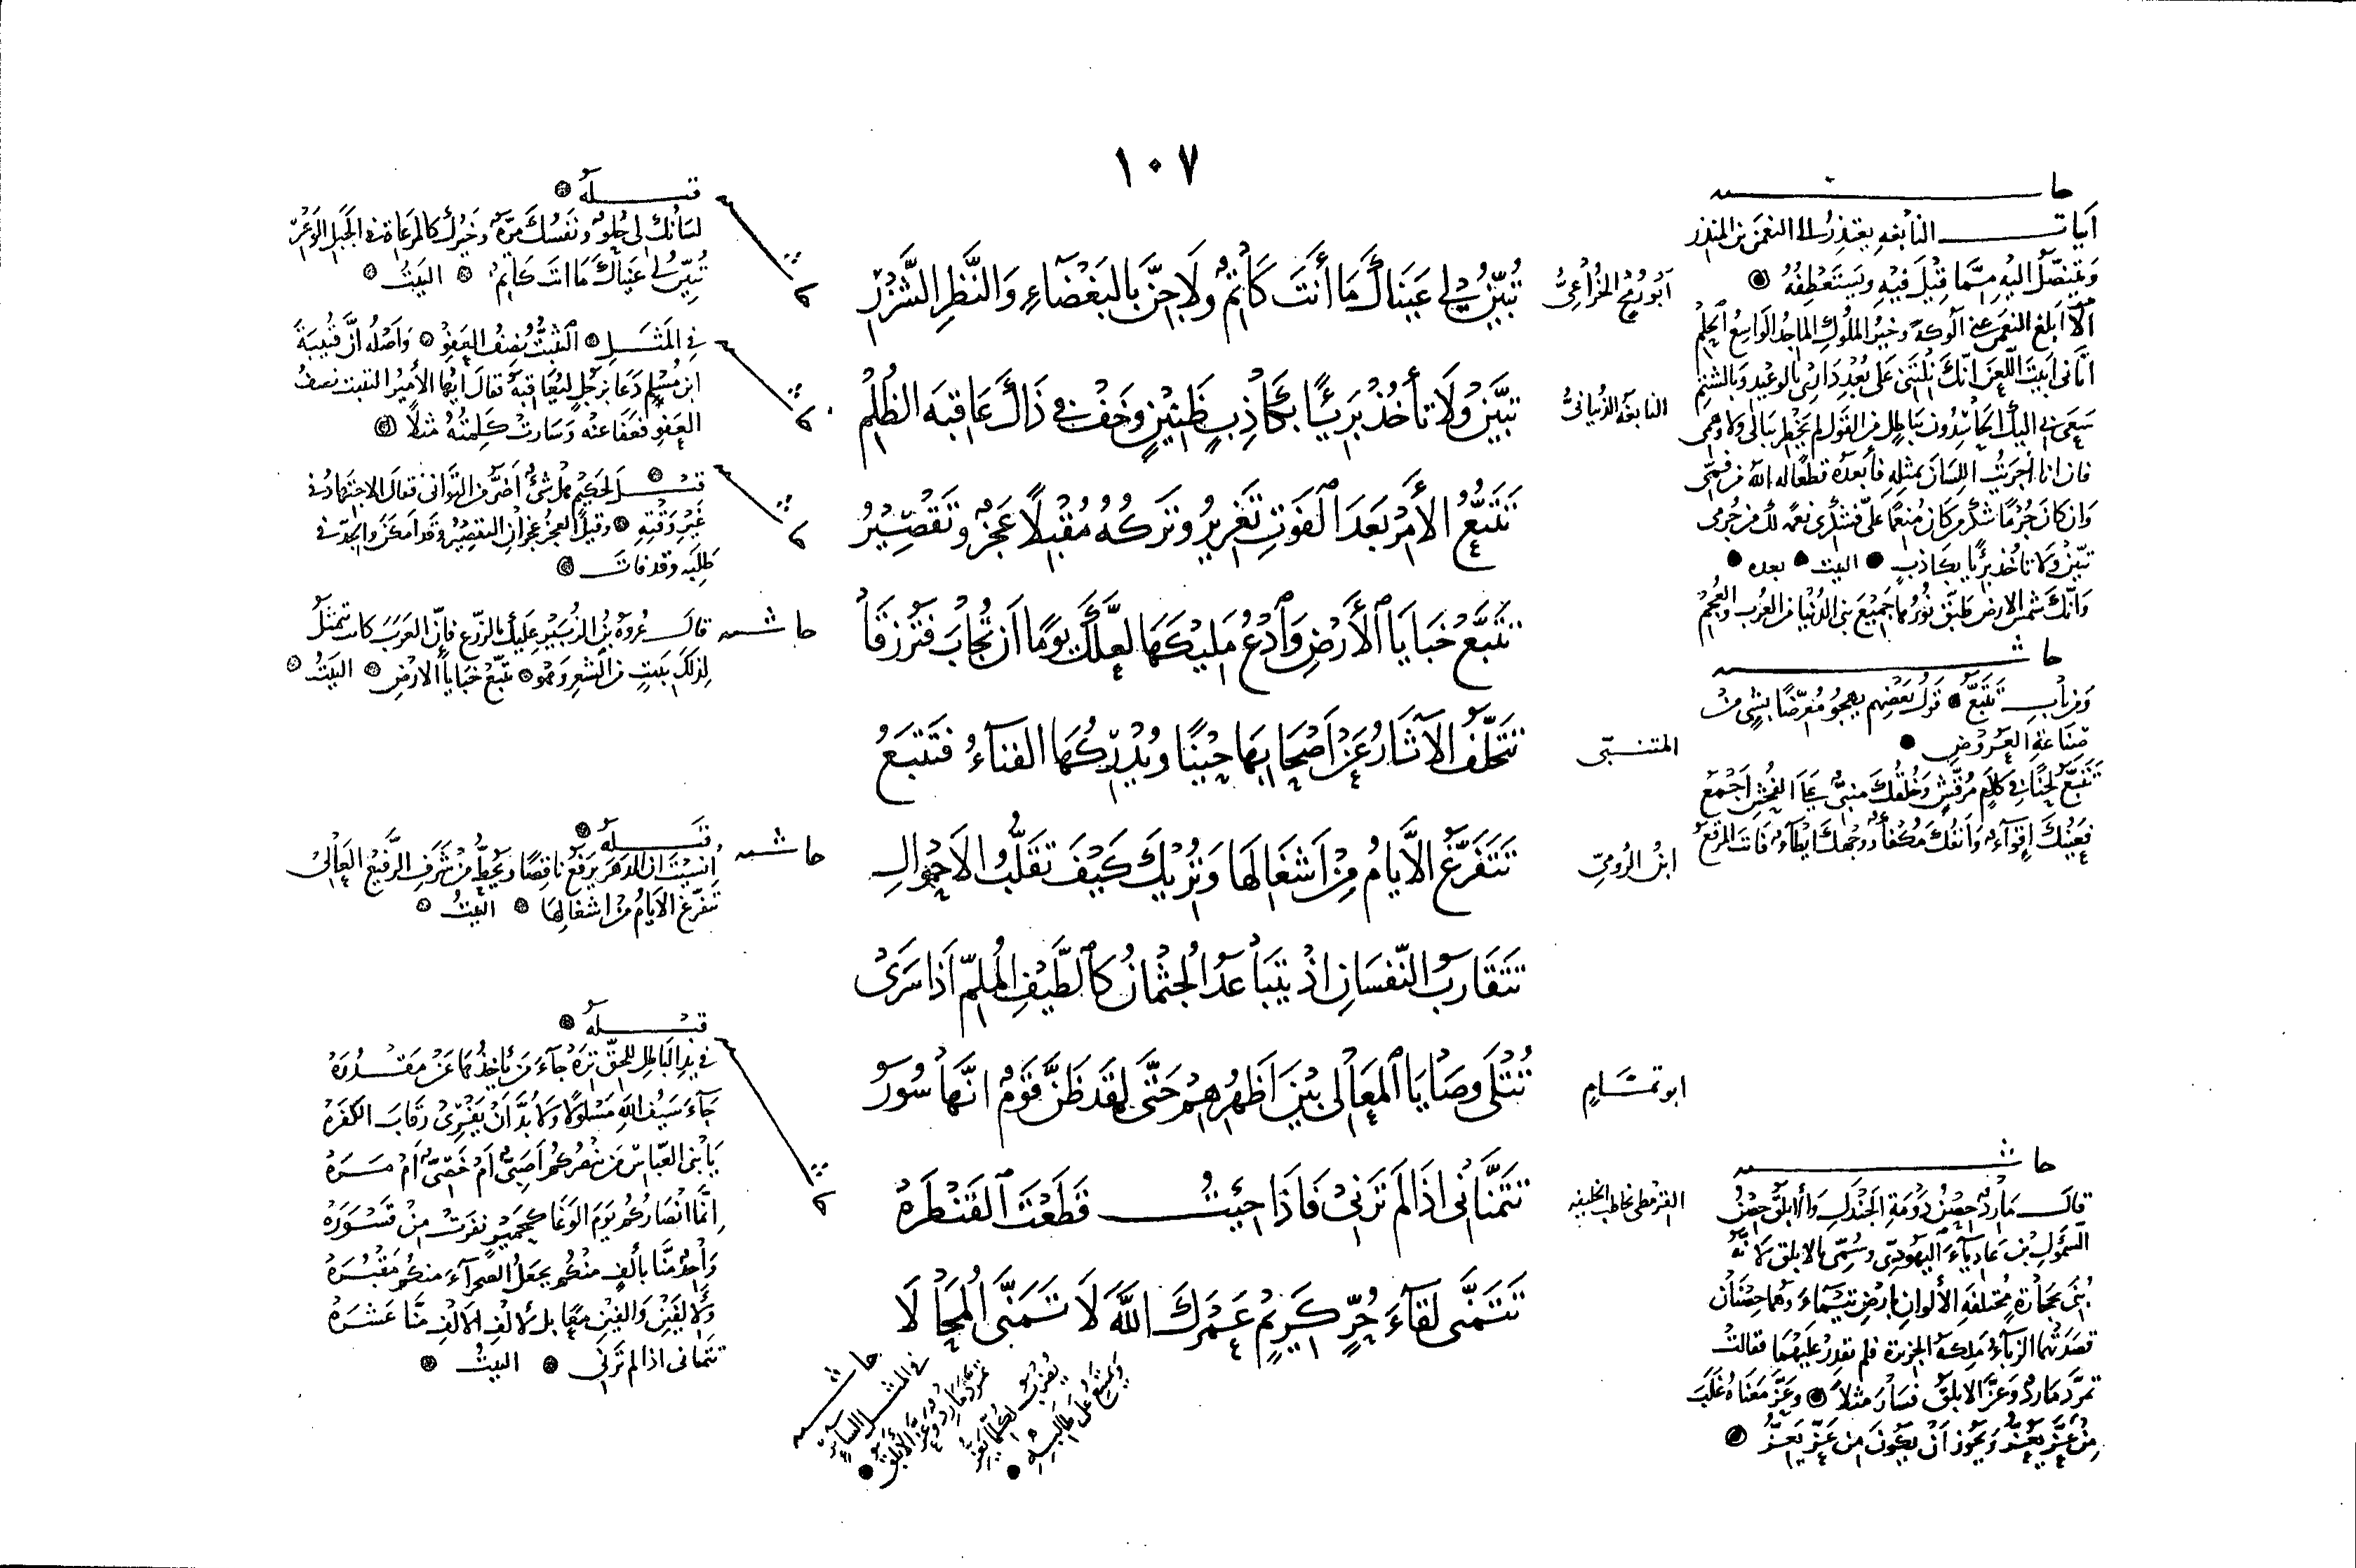 ١٠٧
تُبَيِّنُ لِي عَيْنَاكَ مَا أَنْتَ كَاتِمٌ وَلَا جِنَّ بِالبَغْضَاءِ وَالنَّظَرِ الشَّزْرِ
أبو رمح الخُزَاعِيُّ
تَبَيَّنْ وَلَا تَأْخُذْ بَرِيئًا بِكَاذِبٍ ظَنِيْنٍ وَخَفْ فِي ذَاكَ عَاقِبَةَ الظُّلْمِ
النابغة الذُّبيانيُّ
تَتَبُّعُ الأَمْرِ بَعْدَ الْفَوْتِ تَغْرِيرُ وَتَرْكُهُ مُقْبِلًا عَجْزٌ وَتَقْصِيْرُ
تَتَبَّعْ خَبَايَا الْأَرْضِ وَادْعُ مَلِيْكَهَا لَعَلَّكَ يَوْمًا أَنْ تُجَابَ فَتُرْزَقَا
تَتَخَلَّفُ الآثَارُ عَنْ أَصْحَابِهَا حِيْنًا وَيُدْرِكُهَا الفَنَاءُ فَتَتْبَعُ
المتنبي
تَتَفَرَّغُ الأَيَّامُ مِنْ أَشْغَالِهَا وَتُرِيْكَ كَيْفَ تَقَلُّبُ الأَحْوَالِ
ابنُ الرُّوميّ
تَتَقَارَبُ النَّفْسَانِ إِذْ يَتَبَاعَدُ الجُثْمَانُ كَالطَّيْفِ المُلِمِّ إِذَا سَرَىْ
تُتْلَى وَصَايَا الْمَعَالِي بَيْنَ أَظْهُرِهِمْ حَتَّى لَقَدْ ظَنَّ قَوْمٌ أَنَّهَا سُوَرُ
أبو تمَّامٍ
تَتَمَنَّانِي إِذَا لَمْ تَرَنِي فَإِذَا جِئْتُ قَطَعْتَ الْقَنْطَرَهْ
القرمطي يخاطب الخليفة
تَتَمَنَّى لِقَاءَ حُرٍّ كَرِيْمٍ عَمْرَكَ اللَّهَ لَا تَمَنَّى الْمُحَالَا
حاشية
أبيات النابغة يعتذرُ إلى النعمن بن المنذر
وَيَتَنَصَّلُ إليه مِمَّا قِيْلَ فيهِ وَيَسْتَعْطِفُهُ
ألا أبلغ النعمن عني ألوكة وخير الملوك الماجد الواسع الحلم
أتاني أبيت اللعن أنك لمتني على بعد داري بالوعيد وبالشتم
سعى بي إليك الحاسدون بباطل من القول لم يخطر ببالي ولا وهمي
فإن أنا أجريت اللسان بمثله فأبعده قطعا له الله من فمي
وإن كان جرما شكر من كان منعما علي فشكري نعمة لك من جرمي
تبين ولا تأخذ بريئا بكاذب البيت بعده
وأنك شمس الأرض طبق نورها جميع بني الدنيا من العرب والعجم
حاشية
ومن باب تتبع قول بعضهم يهجو معرضا بشيء من
صناعة العروض
تتبع لحنا في كلام مرقش وخلقك مبني على الفحش أجمع
فعينك إقواء وأنفك مكفأ ووجهك إيطاء فأنت المرقع
حاشية
قال مارد حصن دومة الجندل والأبلق حصن
السموأل بن عادياء اليهودي وسمي بالأبلق لأنه
بني بحجارة مختلفة الألوان بأرض تيماء وهما حصنان
قصدتهما الزباء ملكة الجزيرة فلم تقدر عليهما فقالت
تمرد مارد وعز الأبلق فسار مثلا وعز معناه غلب
من عز يعز ويجوز أن يكون من عز يعز
قبله
لسانك لي حلو ونفسك مرة وخيرك كالمرعاة في الجبل الوعر
تبين لي عيناك ما أنت كاتم البيت
في المثل التثبت نصف العفو وأصله أن قتيبة
ابن مسلم دعا برجل ليعاقبه فقال أيها الأمير التثبت نصف
العفو فعفا عنه وسارت كلمته مثلا
قيل لحكيم هل شيء أضر من التواني فقال الاجتهاد في
غير وقته وقيل العجز عجزان التقصير وقد أمكن والجد في
طلبه وقد فات
حاشية قال عروة بن الزبير عليك بالزرع فإن العرب كانت تتمثل
لذلك ببيت من الشعر وهو تتبع خبايا الأرض البيت
حاشية
قبله
أنسيت أن الدهر يرفع ناقصا ويحط من شرف الرفيع العالي
تتفرغ الأيام من أشغالها البيت
قبله
في يد الباطل للحق تره جاء من يأخذها عن مقدره
جاء سيف الله مسلولا ولا بد أن يفري رقاب الكفره
يا بني العباس من ينصركم أصبي أم خصي أم مره
إنما أنصاركم يوم الوغا كحمير نفرت من قسوره
واحد منا بألف منكم يجعل الصحراء منكم مقبره
ولألفين وألفين معا بل لألف الألف منا عشره
تتمناني إذا لم ترني البيت
حاشية
في المثل السائر
تمرد مارد وعز الأبلق
يضرب لكل ما يعز
ويمتنع على طالبه